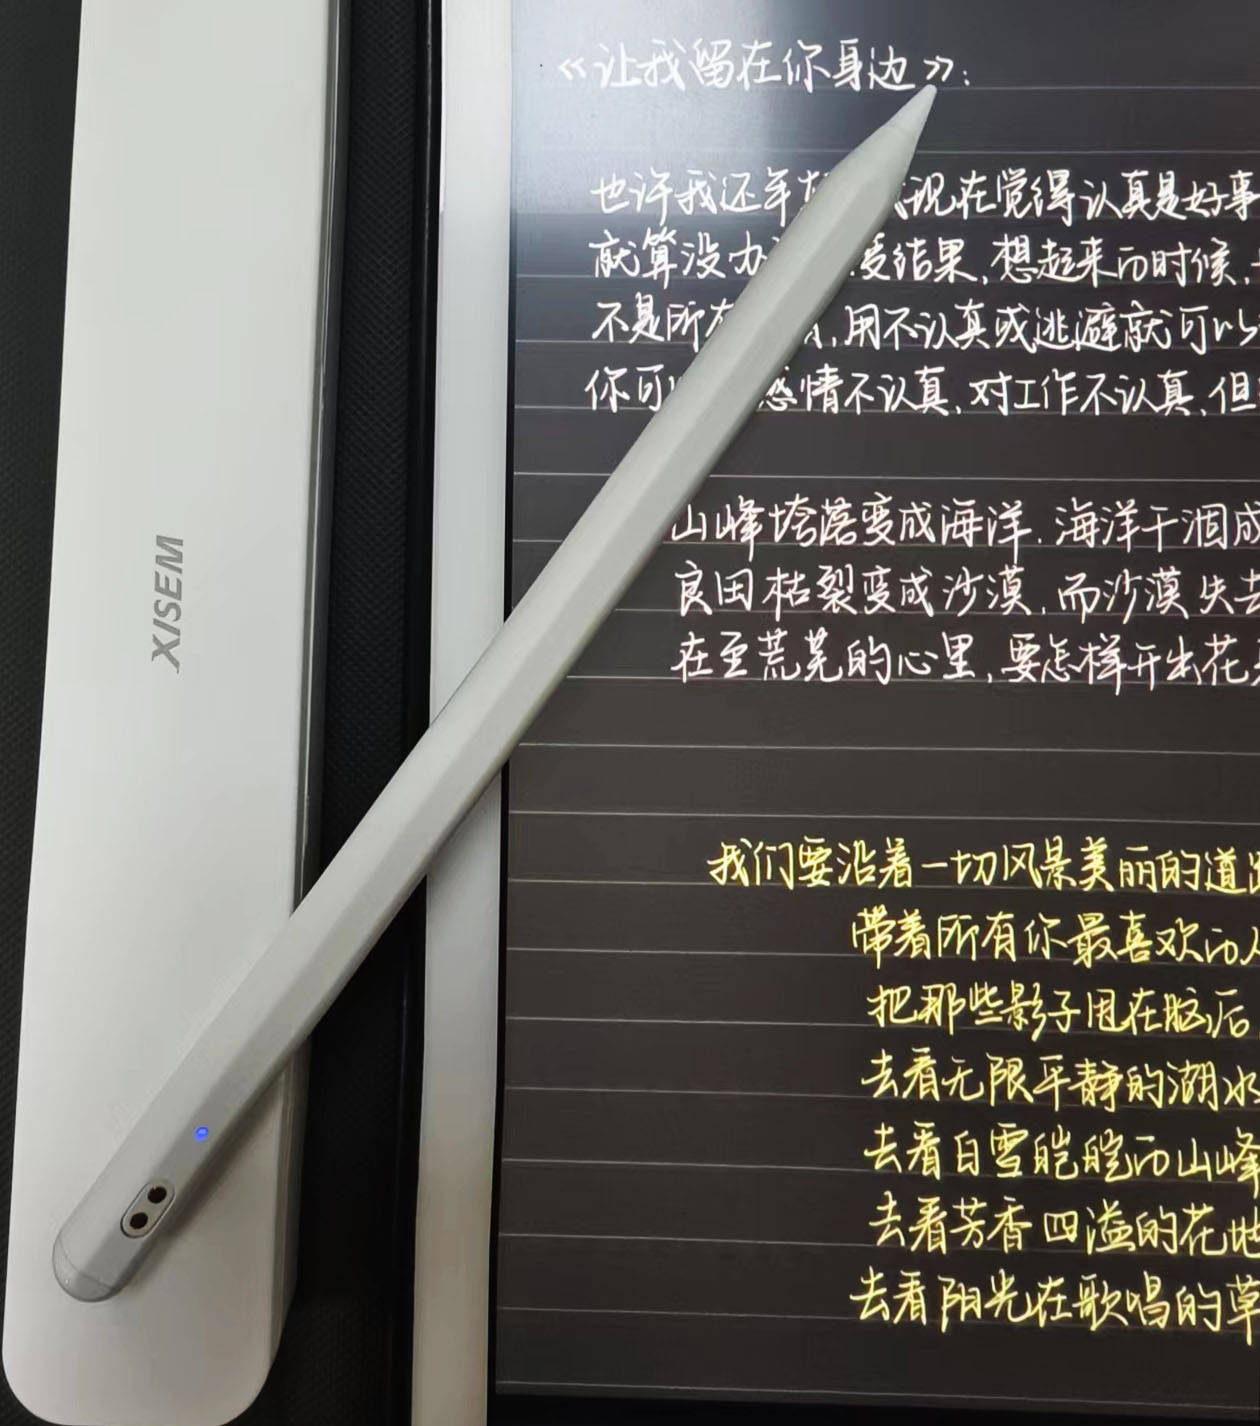 XISEM
《让我留在你身边》:
也许我还年 现在觉得认真是好事
就算没办 结果,想起来的时候,
不是所 ,用不认真或逃避就可以
你可 感情不认真,对工作不认真,但
山峰垮落变成海洋.海洋干涸成
良田枯裂变成沙漠,而沙漠失去
在至荒芜的心里,要怎样开出花
我们要沿着一切风景美丽的道
带着所有你最喜欢的人
把那些影子甩在脑后
去看无限平静的湖水
去看白雪皑皑的山峰
去看芳香四溢的花地
去看阳光在歌唱的草